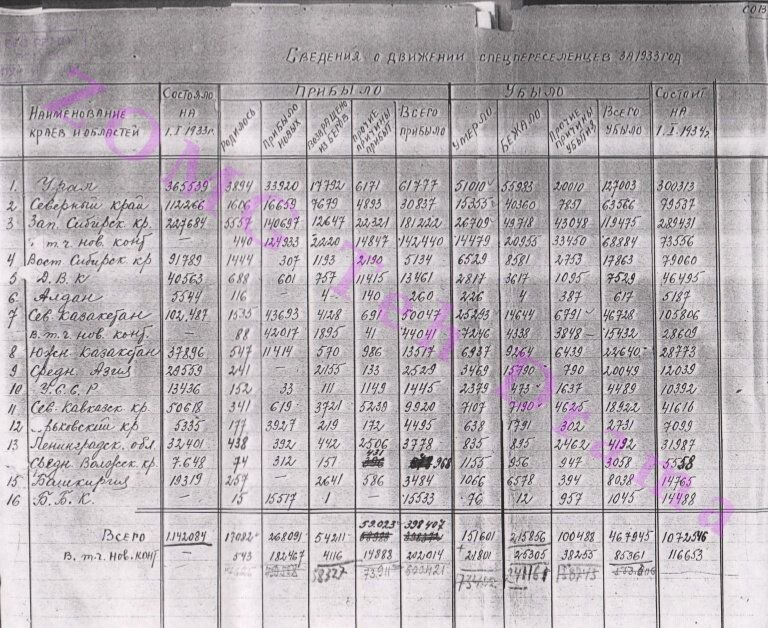 СВЕДЕНИЯ О ДВИЖЕНИИ СПЕЦПЕРЕСЕЛЕНЦЕВ ЗА 1933 ГОД
НАИМЕНОВАНИЕ КРАЕВ И ОБЛАСТЕЙ
СОСТОЯЛО НА 1.I 1933г.
ПРИБЫЛО
РОДИЛОСЬ
ПРИБЫЛО НОВЫХ
ВОЗВРАЩЕНО ИЗ БЕГОВ
ПРОЧИЕ ПРИЧИНЫ ПРИБЫТ
ВСЕГО ПРИБЫЛО
УБЫЛО
УМЕРЛО
БЕЖАЛО
ПРОЧИЕ ПРИЧИНЫ УБЫЛИЗ
ВСЕГО УБЫЛО
СОСТОИТ НА 1.I.1934г
1. Урал 365539 3894 33920 17792 6171 61777 51010 55983 20010 127003 300313
2 Северный край 112266 1606 16659 7679 4893 30837 15355 40360 7851 63566 79537
3 Зап. Сибирск. кр. 227684 5557 140697 12647 22321 181222 26709 49718 43048 119475 289431
в т.ч. нов. конт — 440 124933 2220 14847 142440 14479 20955 33450 68884 73556
4 Вост Сибирск кр 91789 1444 307 1193 2190 5134 6529 8581 2753 17863 79060
5 Д. В. К 40563 688 601 757 11415 13461 2817 3617 1095 7529 46495
6 Алдан 5544 116 — 4 140 260 226 4 387 617 5187
7 Сев. Казакстан 102,487 1535 43693 4128 691 50047 25293 14644 6791 46728 105806
в. т. ч. нов. конт — 88 42017 1895 41 44041 7246 4338 3848 15432 28609
8 Южн. Казакстан 37896 547 11414 570 986 13517 6937 9264 6439 22640 28773
9 Средн. Азия 29559 241 — 2155 133 2529 3469 15790 790 20049 12039
10 У. С. С. Р. 13436 152 33 111 1149 1445 2379 473 1637 4489 10392
11 Сев. Кавказск. кр. 50618 341 619 3721 5239 9920 7107 7190 4625 18922 41616
12 рьковский кр 5335 177 3927 219 172 4495 638 1791 302 2731 7099
13 Ленинградск. обл. 32401 438 392 442 2506 3778 835 895 2462 4192 31987
кр 7.648 74 312 151 431 968 1155 956 947 3058 5558
15 Башкирия 19319 257 — 2641 586 3484 1066 6578 394 8038 14765
16 Б. Б. К. — 15 15517 1 — 15533 76 12 957 1045 14488
ВСЕГО 1142084 17082 268091 54211 59.023 398407 151601 215856 100488 467945 1072546
В. т. ч. нов. конт — 543 182467 4116 14888 202014 21801 25305 38255 85361 116653
58327
ZOMG Teh Drama